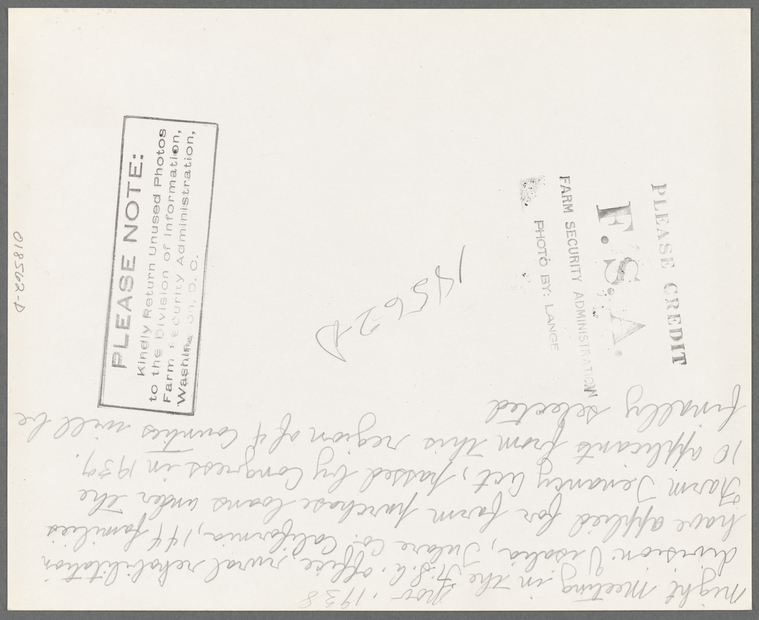 Nov. 1938
night meeting in the F.S.A. office, rural rehabilitation
division. Visalia, Tulare Co. California, 144 families
have applied for farm purchase loans under the
Farm Tenancy Act, passed by Congress in 1937.
10 applicants from this region of 4 Counties will be
finally selected
18562-D
PLEASE CREDIT
F.S.A.
FARM SECURITY ADMINISTRATION
PHOTO BY: LANGE
PLEASE NOTE:
Kindly Return Unused Photos
to the Division of Information,
Farm Security Administration,
Washington, D. C.
018562-D